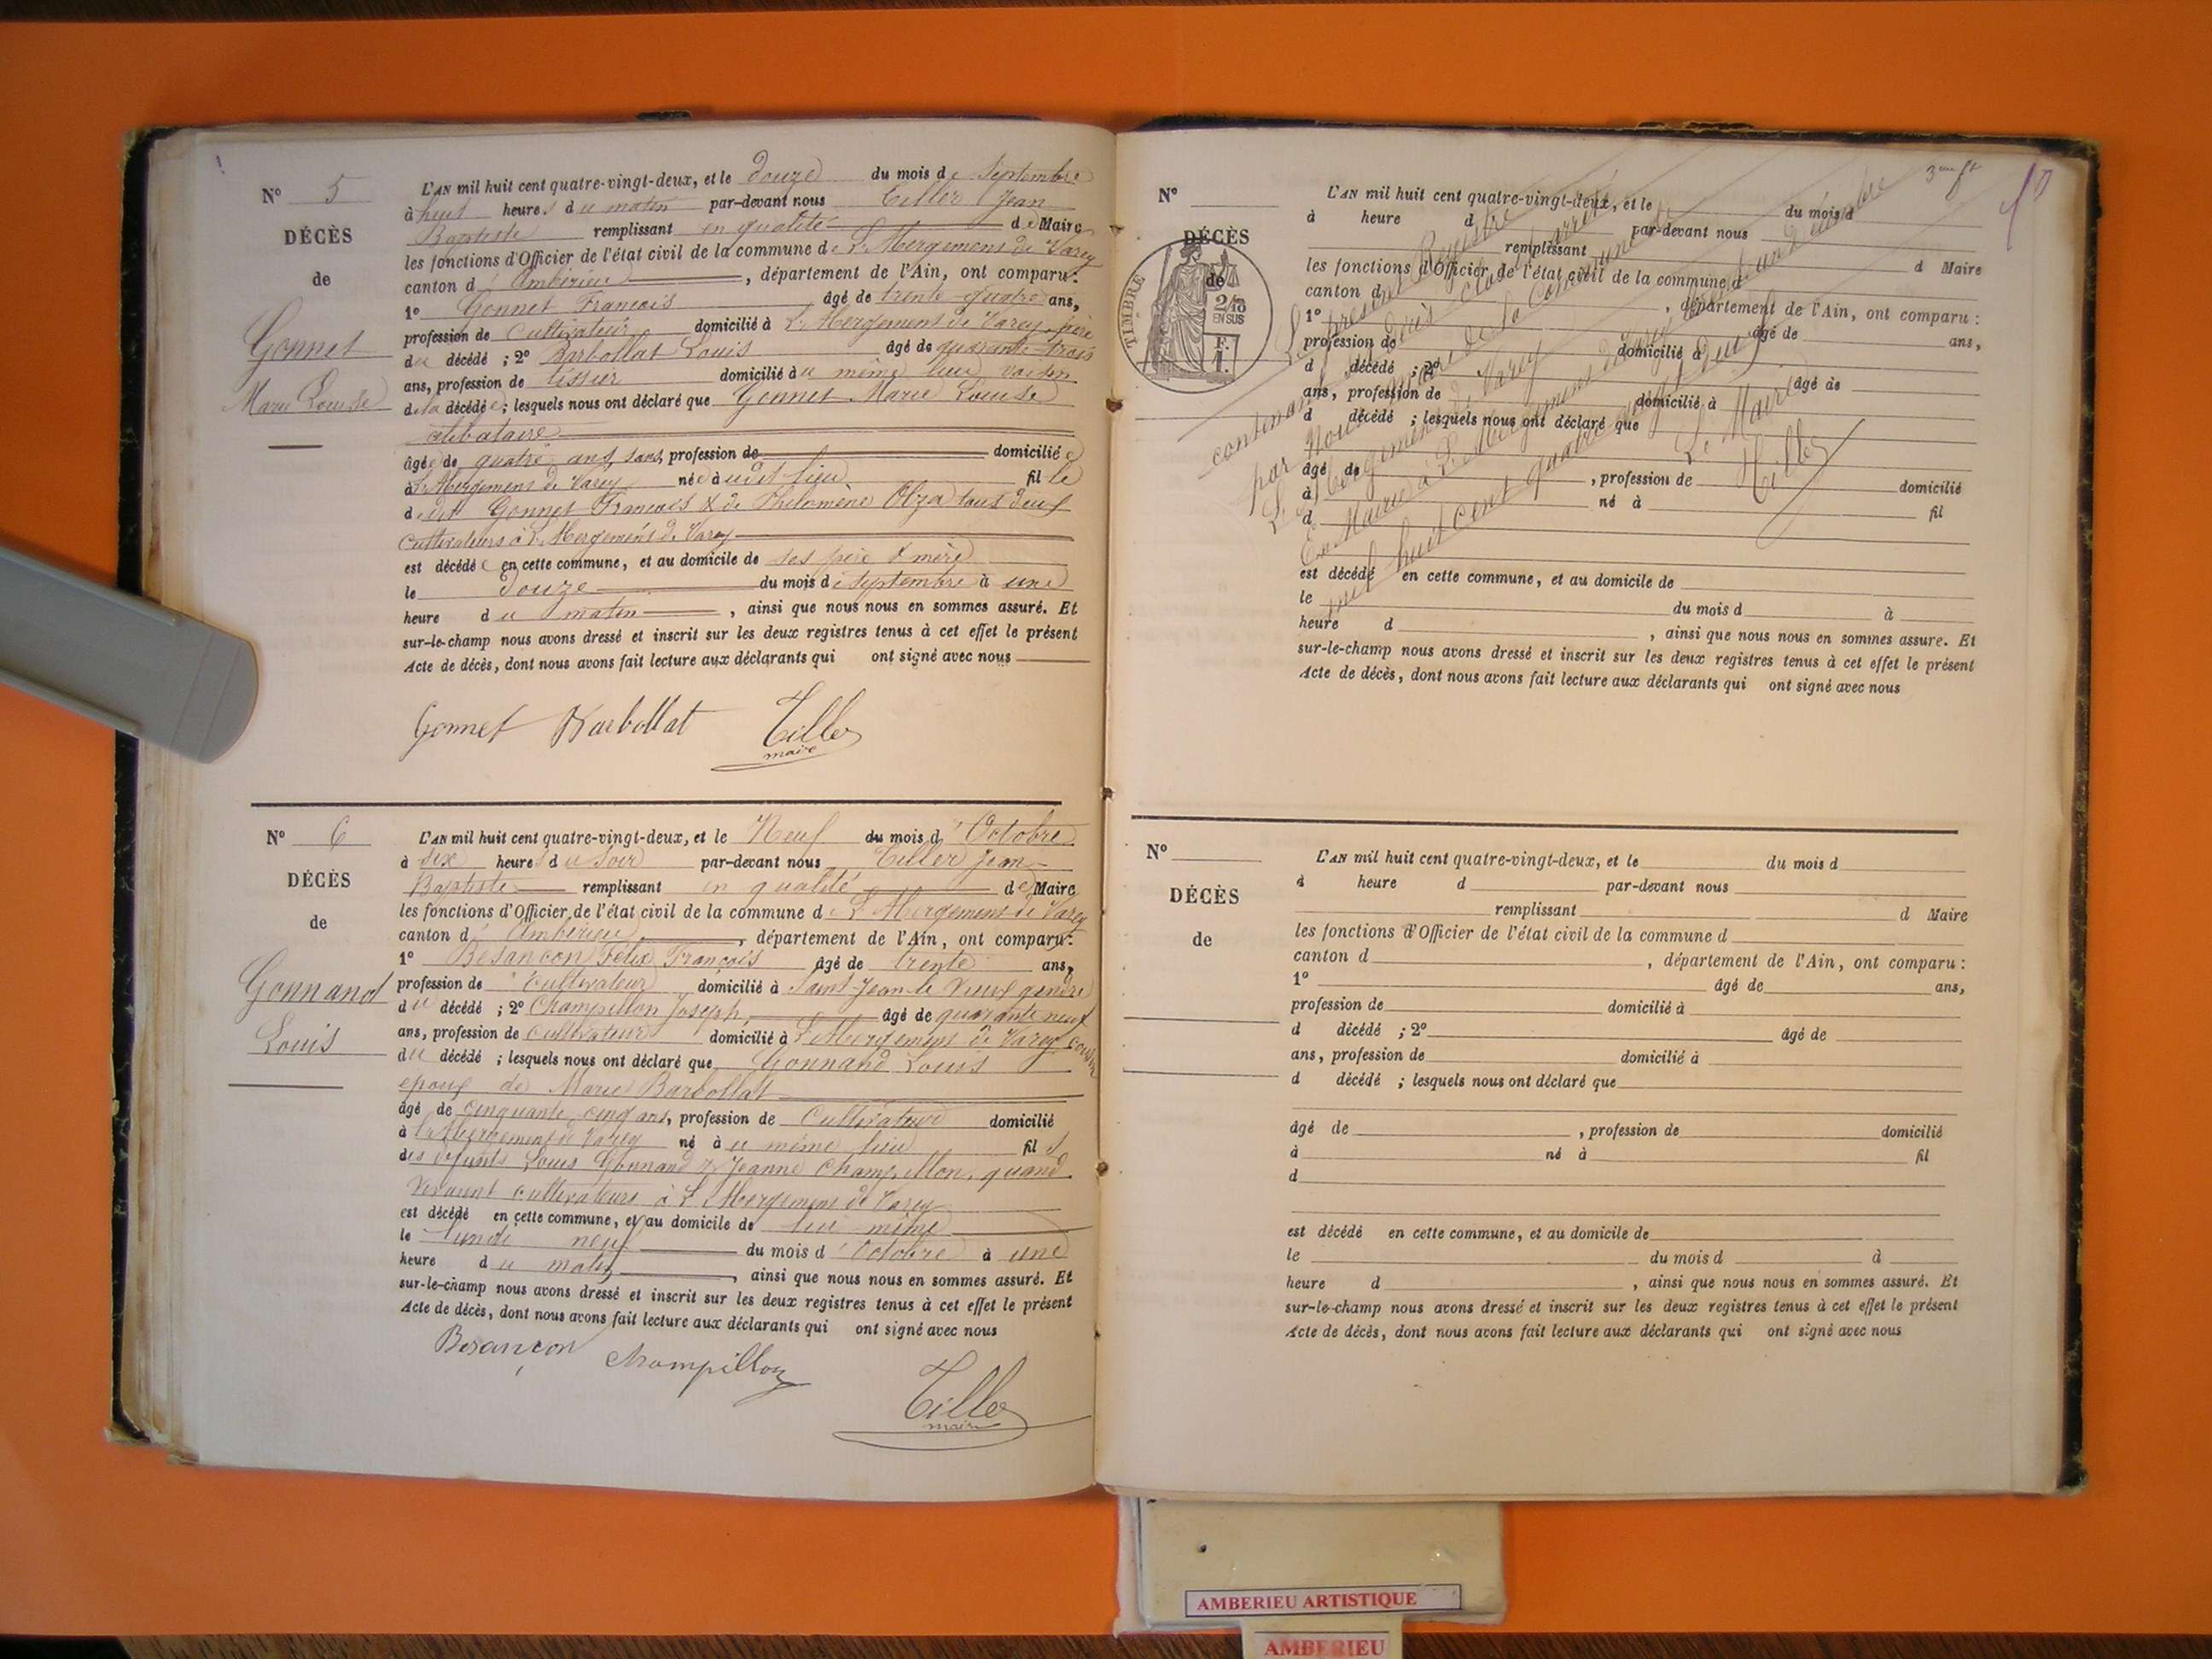 N° 5
DÉCÈS
de
Gonnet
Marie Louise
L'AN mil huit cent quatre-vingt-deux, et le Douze du mois de Septembre
à huit heures du matin par-devant nous Tiller Jean
Baptiste remplissant en qualité de Maire
les fonctions d'Officier de l'état civil de la commune de L'Abergement de Varey
canton d'Ambérieu, département de l'Ain, ont comparu :
1° Gonnet François âgé de trente-quatre ans,
profession de Cultivateur domicilié à L'Abergement de Varey, père
du décédé ; 2° Barbollat Louis âgé de quarante-trois
ans, profession de tisseur domicilié au même lieu voisin
de la décédée ; lesquels nous ont déclaré que Gonnet Marie Louise
célibataire
âgée de quatre ans, sans profession de domiciliée
à L'Abergement de Varey née audit lieu fille
de dit Gonnet François & de Philomène Olza tous deux
cultivateurs à L'Abergement de Varey
est décédée en cette commune, et au domicile de ses père & mère
le Douze du mois de Septembre à une
heure du matin, ainsi que nous nous en sommes assuré. Et
sur-le-champ nous avons dressé et inscrit sur les deux registres tenus à cet effet le présent
Acte de décès, dont nous avons fait lecture aux déclarants qui ont signé avec nous
Gonnet Barbollat Tiller
maire
N° 6
DÉCÈS
de
Gonnand
Louis
L'AN mil huit cent quatre-vingt-deux, et le Neuf du mois d'Octobre
à six heures du soir par-devant nous Tiller Jean
Baptiste remplissant en qualité de Maire
les fonctions d'Officier de l'état civil de la commune de L'Abergement de Varey
canton d'Ambérieu, département de l'Ain, ont comparu :
1° Besançon Félix François âgé de trente ans,
profession de Cultivateur domicilié à Saint-Jean-le-Vieux gendre
du décédé ; 2° Champillon Joseph, âgé de quarante neuf
ans, profession de cultivateur domicilié à L'Abergement de Varey cousin
du décédé ; lesquels nous ont déclaré que Gonnand Louis
époux de Marie Barbollat
âgé de cinquante-cinq ans, profession de Cultivateur domicilié
à L'Abergement de Varey né à u même lieu fils
des défunts Louis Gonnand & Jeanne Champillon, quand
vivaient cultivateurs à L'Abergement de Varey
est décédé en cette commune, et au domicile de lui-même
le lundi neuf du mois d'Octobre à une
heure du matin, ainsi que nous nous en sommes assuré. Et
sur-le-champ nous avons dressé et inscrit sur les deux registres tenus à cet effet le présent
Acte de décès, dont nous avons fait lecture aux déclarants qui ont signé avec nous
Besançon Champillon
Tiller
maire
3me ft
10
N°
DÉCÈS
de
TIMBRE
2/10
EN SUS
F.
1.
L'AN mil huit cent quatre-vingt-deux, et le du mois d
à heure d par-devant nous
remplissant d Maire
les fonctions d'Officier de l'état civil de la commune d
canton d , département de l'Ain, ont comparu :
1° âgé de ans,
profession de domicilié à
d décédé ; 2° âgé de
ans, profession de domicilié à
d décédé ; lesquels nous ont déclaré que
âgé de , profession de domicilié
à né à fil
d
est décédé en cette commune, et au domicile de
le du mois d à
heure d , ainsi que nous nous en sommes assuré. Et
sur-le-champ nous avons dressé et inscrit sur les deux registres tenus à cet effet le présent
Acte de décès, dont nous avons fait lecture aux déclarants qui ont signé avec nous
Le présent Registre
contenant décès clos arrêté
par Nous maire de la Commune de
L'Abergement de Varey
En Mairie à L'Abergement de Varey
mil huit cent quatre vingt deux
Le Maire
Tiller
N°
DÉCÈS
de
L'AN mil huit cent quatre-vingt-deux, et le du mois d
à heure d par-devant nous
remplissant d Maire
les fonctions d'Officier de l'état civil de la commune d
canton d , département de l'Ain, ont comparu :
1° âgé de ans,
profession de domicilié à
d décédé ; 2° âgé de
ans, profession de domicilié à
d décédé ; lesquels nous ont déclaré que
âgé de , profession de domicilié
à né à fil
d
est décédé en cette commune, et au domicile de
le du mois d à
heure d , ainsi que nous nous en sommes assuré. Et
sur-le-champ nous avons dressé et inscrit sur les deux registres tenus à cet effet le présent
Acte de décès, dont nous avons fait lecture aux déclarants qui ont signé avec nous
AMBERIEU ARTISTIQUE
AMBERIEU